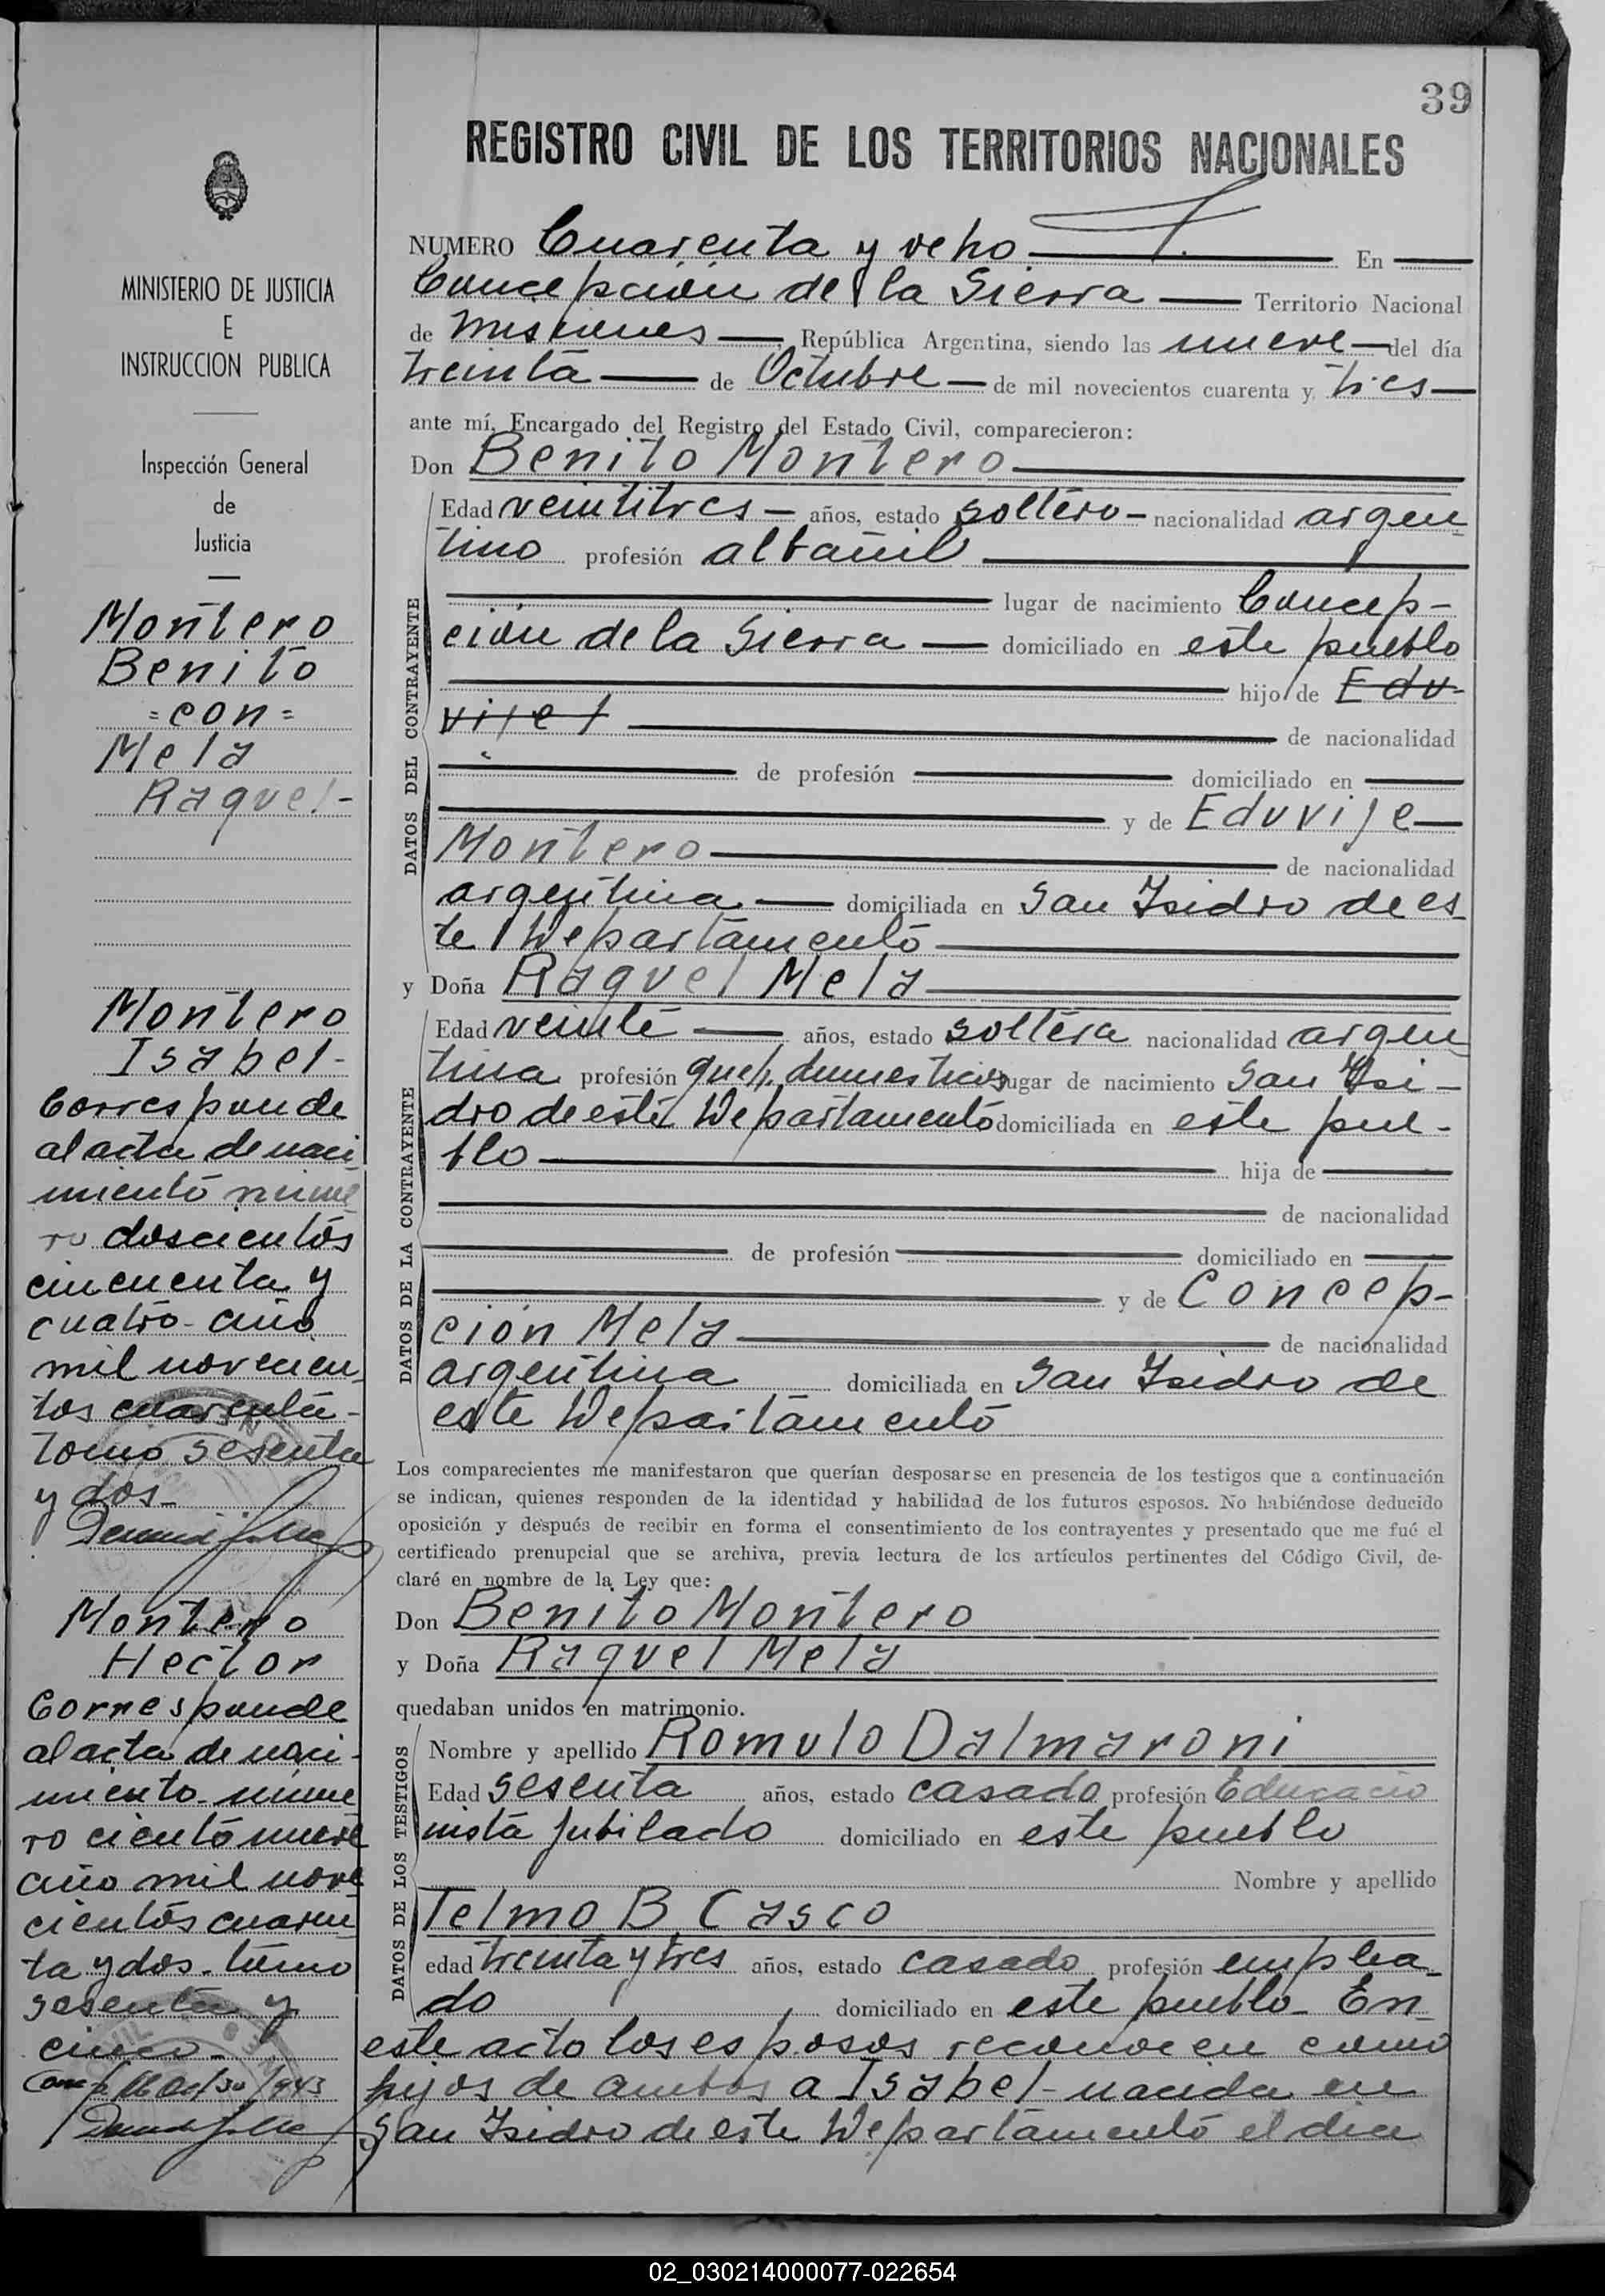 39
REGISTRO CIVIL DE LOS TERRITORIOS NACIONALES
NUMERO Cuarenta y ocho En
Concepción de la Sierra Territorio Nacional
de Misiones, República Argentina, siendo las nueve del día
treinta de Octubre de mil novecientos cuarenta y tres
ante mí, Encargado del Registro del Estado Civil, comparecieron:
Don Benito Montero
Edad veintitres años, estado soltero nacionalidad argen
tino profesión albañil
lugar de nacimiento Concep-
ción de la Sierra domiciliado en este pueblo
hijo de Edu-
vije de nacionalidad
de profesión domiciliado en
y de Eduvije
Montero de nacionalidad
argentina domiciliada en San Isidro de es
te Departamento
y Doña Raquel Mela
Edad veinte años, estado soltera nacionalidad argen
tina profesión queh. domesticos lugar de nacimiento San Isi-
dro de este Departamento domiciliada en este pue-
blo hija de
de nacionalidad
de profesión domiciliado en
y de Concep-
ción Mela de nacionalidad
argentina domiciliada en San Isidro de
este Departamento
Los comparecientes me manifestaron que querían desposarse en presencia de los testigos que a continuación
se indican, quienes responden de la identidad y habilidad de los futuros esposos. No habiéndose deducido
oposición y después de recibir en forma el consentimiento de los contrayentes y presentado que me fué el
certificado prenupcial que se archiva, previa lectura de los artículos pertinentes del Código Civil, de-
claré en nombre de la Ley que:
Don Benito Montero
y Doña Raquel Mela
quedaban unidos en matrimonio.
Nombre y apellido Romulo Dalmaroni
Edad sesenta años, estado casado profesión Educacio
nista jubilado domiciliado en este pueblo
Nombre y apellido
Telmo B Casco
edad treinta y tres años, estado casado profesión emplea-
do domiciliado en este pueblo- En
este acto los esposos reconocen como
hijos de ambos a Isabel- nacida en
San Isidro de este Departamento el dia
DATOS DEL CONTRAYENTE
DATOS DE LA CONTRAYENTE
DATOS DE LOS TESTIGOS
MINISTERIO DE JUSTICIA
E
INSTRUCCION PUBLICA
Inspección General
de
Justicia
Montero
Benito
=con=
Mela
Raquel-
Montero
Isabel-
Corresponde
al acta de naci
miento nume
ro doscientos
cincuenta y
cuatro- año
mil novecien
tos cuarenta-
tomo sesenta
y dos-
Montero
Hector
Corresponde
al acta de naci-
miento- nume
ro ciento nueve
año mil nove
cientos cuaren
ta y dos- tomo
sesenta y
cinco-
02_030214000077-022654